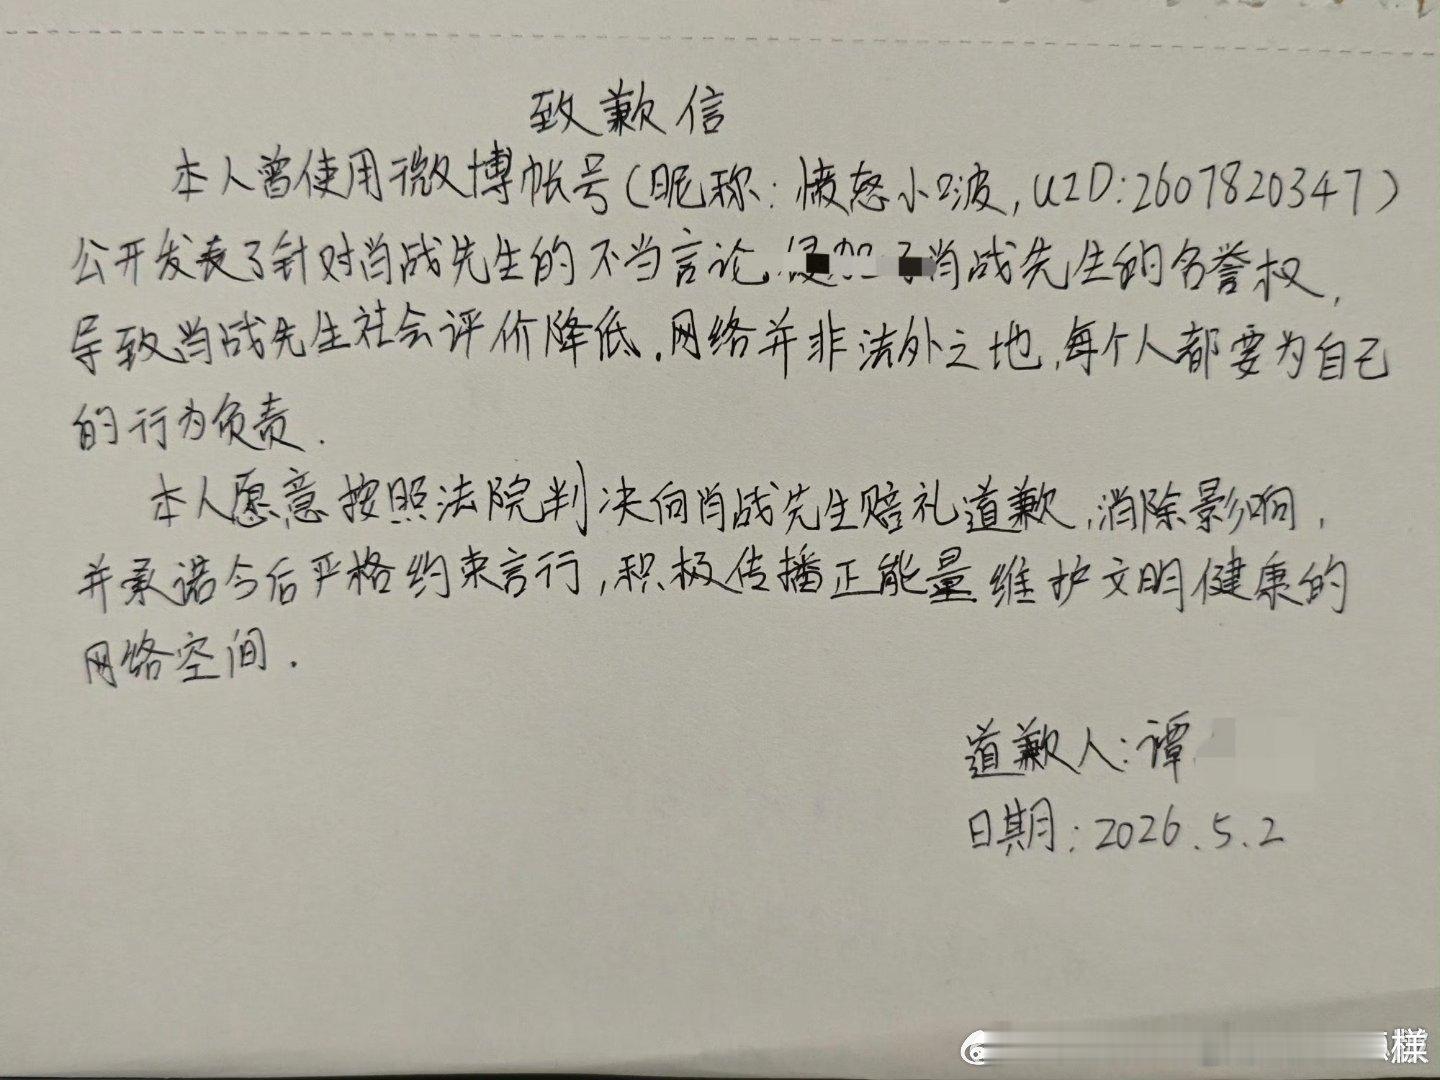 致歉信
本人曾使用微博帐号(昵称:愤怒小口波,UID:2607820347)
公开发表了针对肖战先生的不当言论,侵 了肖战先生的名誉权,
导致肖战先生社会评价降低.网络并非法外之地,每个人都要为自己
的行为负责.
本人愿意按照法院判决向肖战先生赔礼道歉,消除影响,
并承诺今后严格约束言行,积极传播正能量 维护文明健康的
网络空间.
道歉人:谭
日期:2026.5.2
樣